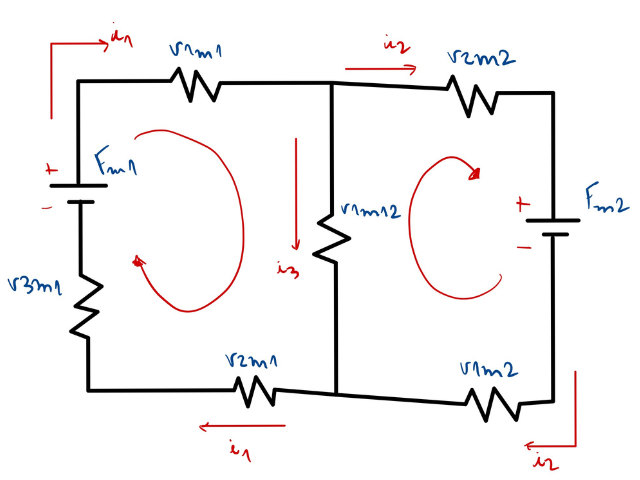 i1
r1m1
i2
r2m2
+
Fm1
-
+
Fm2
-
r1m12
i3
r3m1
r2m1
r1m2
i1
i2